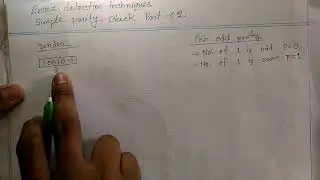 Error detection techniques
Simple parity check Part-02
Sender
For odd parity
→ No. of 1 is odd P=0
→ No. of 1 is even P=1